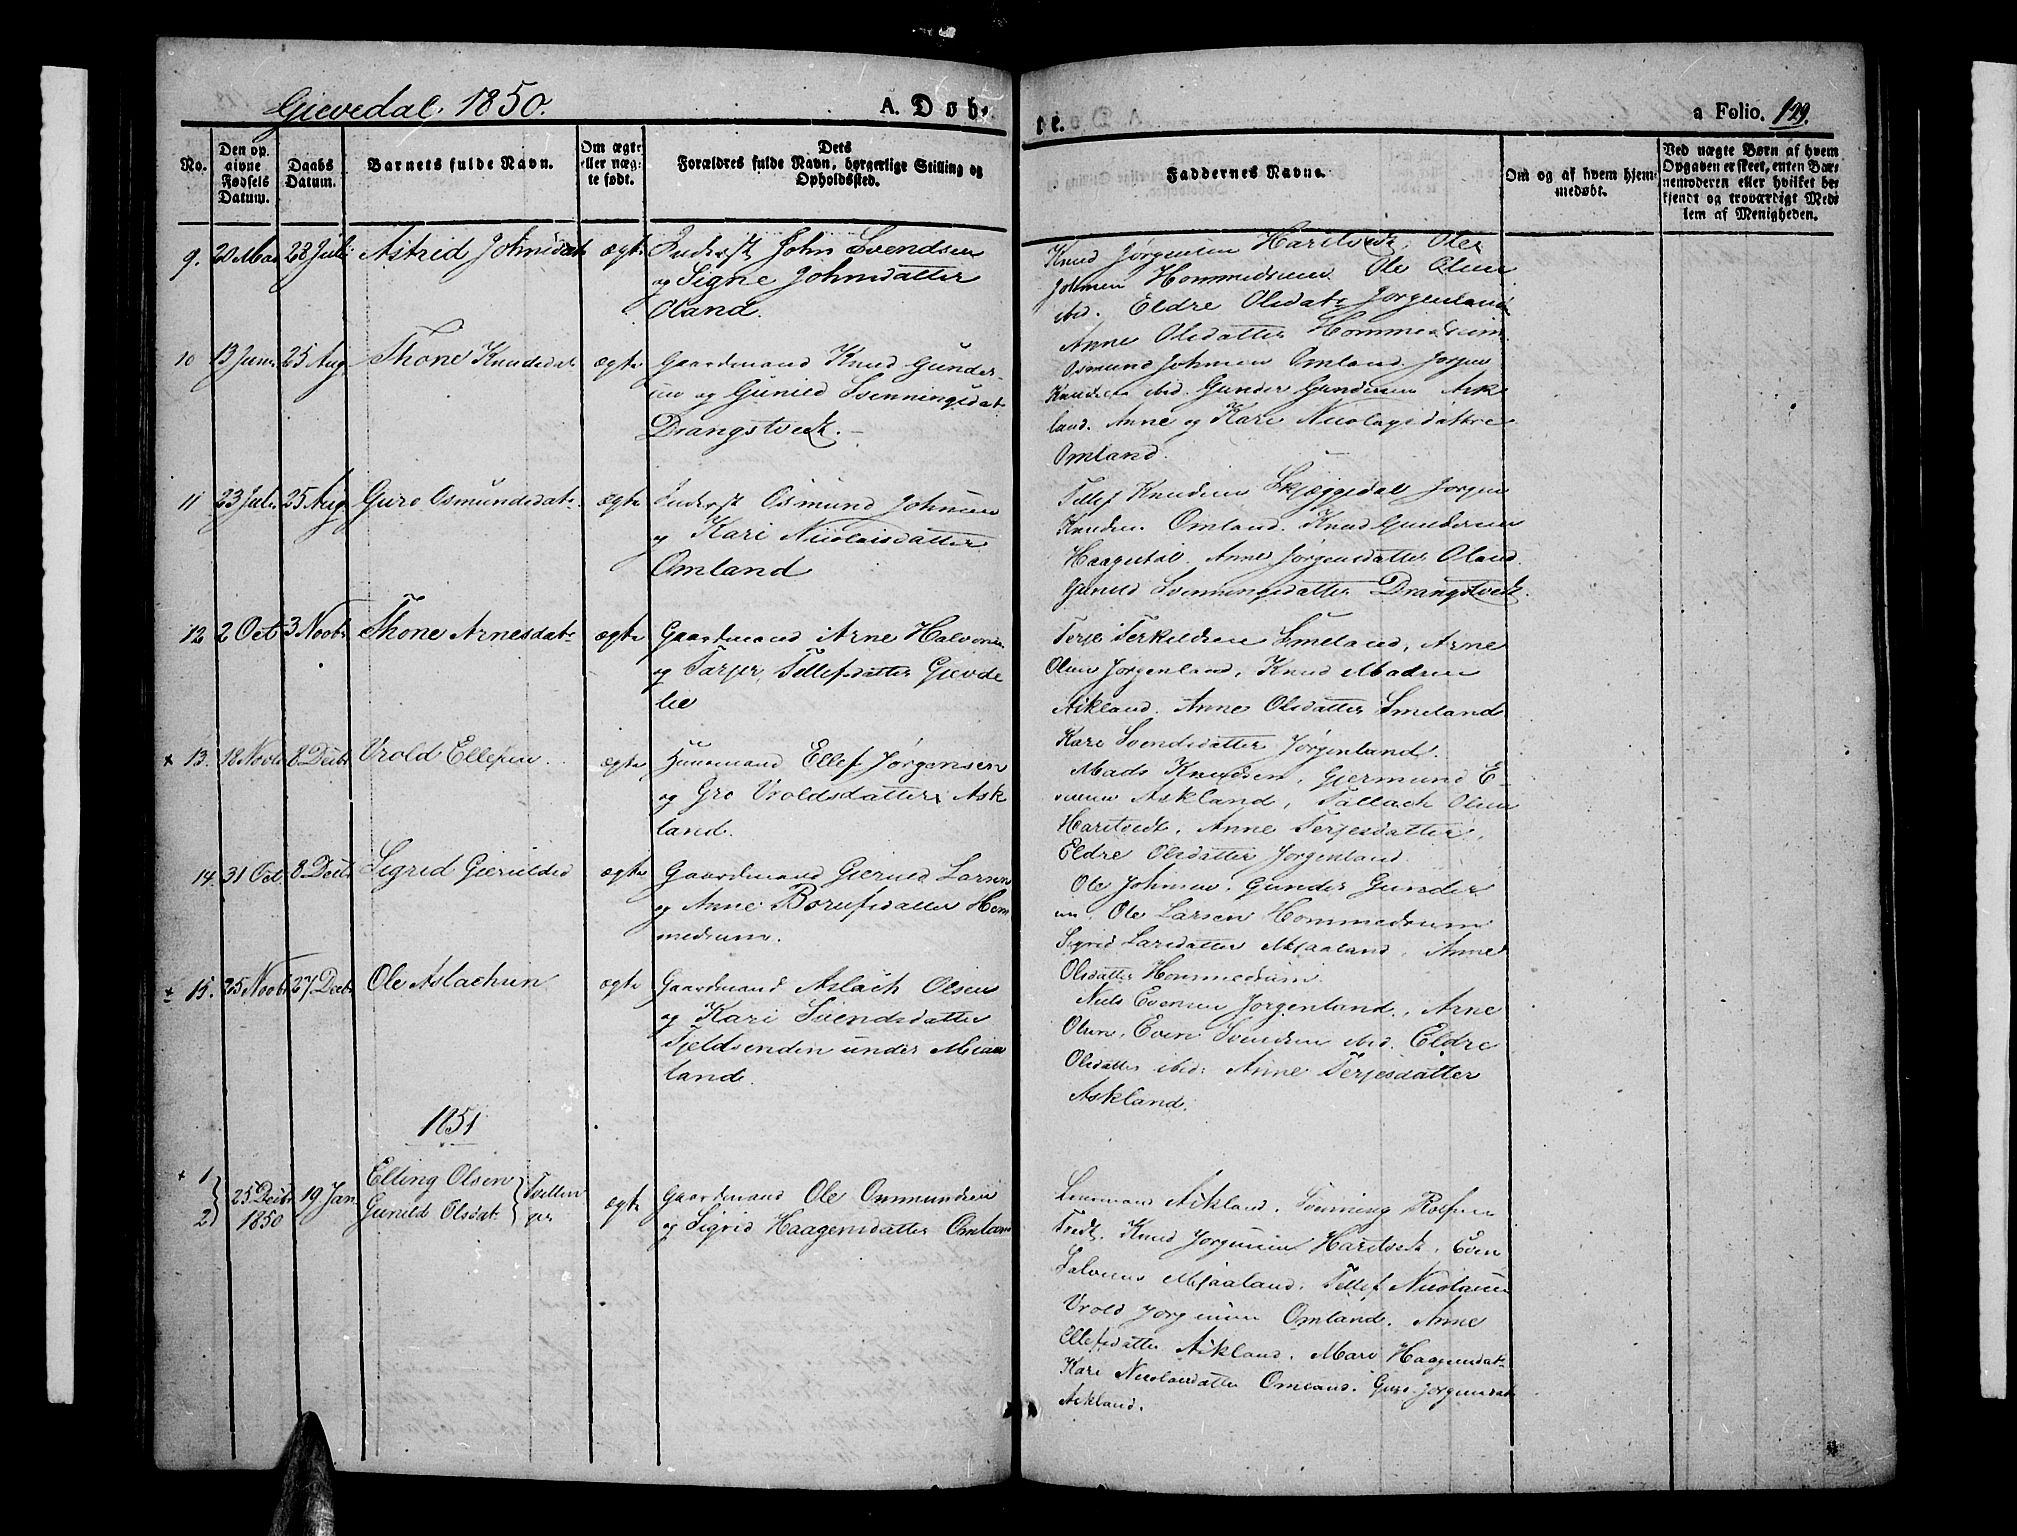 Gievedal 1850.
A. Døb-
te.
a Folio. 129.
No.
Den op-
givne
Fødsels
Datum.
Daabs
Datum.
Barnets fulde Navn.
Om ægte
eller uæg-
te født.
Dets
Forældres fulde Navn, borgerlige Stilling og
Opholdssted.
Faddernes Navne.
Om og af hvem hjem-
medøbt.
Ved uægte Børn af hvem
Opgaven er skeet, enten Bar-
nemoderen eller hvilket be-
kjendt og troværdigt Med-
lem af Menigheden.
9. 20 Mai 28 Juli Astrid Johnsdat ægte Inderst John Svendsen
og Signe Johnsdatter
Oland.
Knud Jørgensen Haritvedt, Ole
Johnsen Hommedrum Ole Olsen
ibd. Eldre Olsdatr Jørgenland
Anne Olsdatter Hommedrum.
10 13 Juni 25 Aug Thone Knudsdat ægte Gaardmand Knud Gunder-
sen og Gunild Svenningsdat
Drangstvedt.
Osmund Johnsen Omland. Jørgen
Knudsen ibd. Gunder Gundersen Ask
land. Anne og Kari Nicolaysdattre
Omland.
11 23 Juli 25 Aug Guro Osmundsdatr. ægte Inderst Osmund Johnsen
og Kari Nicolaisdatter
Omland
Tellef Knudsen Skjeggedal Jørgen
Knudsen Omland. Knud Gundersen
Anne Jørgensdatter Oland.
Gunild Svenningsdatter Drangstvedt.
12 2 Oct 3 Novbr Thone Arnesdatr ægte Gaardmand Arne Halvorsen
og Tarjer Tellefsdatter Gievde
lie
Terje Terkildsen Smeland, Arne
Olsen Jørgenland, Knud Madsen
Askland. Anne Olsdatter Smeland
Kare Svendsdatter Jørgenland.
+ 13. 18 Novbr 8 Decbr Vrold Ellefsen. ægte Huusmand Ellef Jørgensen
og Gro Vroldsdatter Ask
land.
Mads Knudsen, Gjermund E-
vensen Askland, Tallach Olsen
Haritvedt, Anne Terjesdatter,
Eldre Olsdatter Jørgenland.
14. 31 Oct. 8 Decbr Sigrid Gieruldsd ægte Gaardmand Gieruld Larsen
og Anne Borufsdatter Hom
medrum.
Ole Johnsen, Gunder Gunder
sen, Ole Larsen Hommedrum
Sigrid Larsdatter Mjaaland, Anne
Olsdatter Hommedrum.
+ 15. 25 Novbr 27 Decbr Ole Aslachsen ægte Gaardmand Aslach Olsen
og Kari Svendsdatter
Fjeldsenden under Miaa
land.
Niels Evensen Jørgenland, Arne
Olsen, Even Svendsen ibd. Eldre
Olsdatter ibid: Anne Terjesdatter
Askland.
1851
+ 1
2 25 Decbr
1850 19 Jan Elling Olsen
Gunild Olsdat. Tvillin
ger ægte Gaardmand Ole Osmundsen
og Sigrid Haagensdatter Omland
Lensmand Askland, Svenning Rolfsen
Tvedt, Knud Jørgensen Haritvedt, Even
Salvesens Mjaaland, Tellef Nicolaisen
Vrold Jørgensen Omland. Anne
Ellefsdatter Askland. Mari Haagensdatr
Kari Nicolaisdatter Omland. Guro Jørgensdat
Askland.